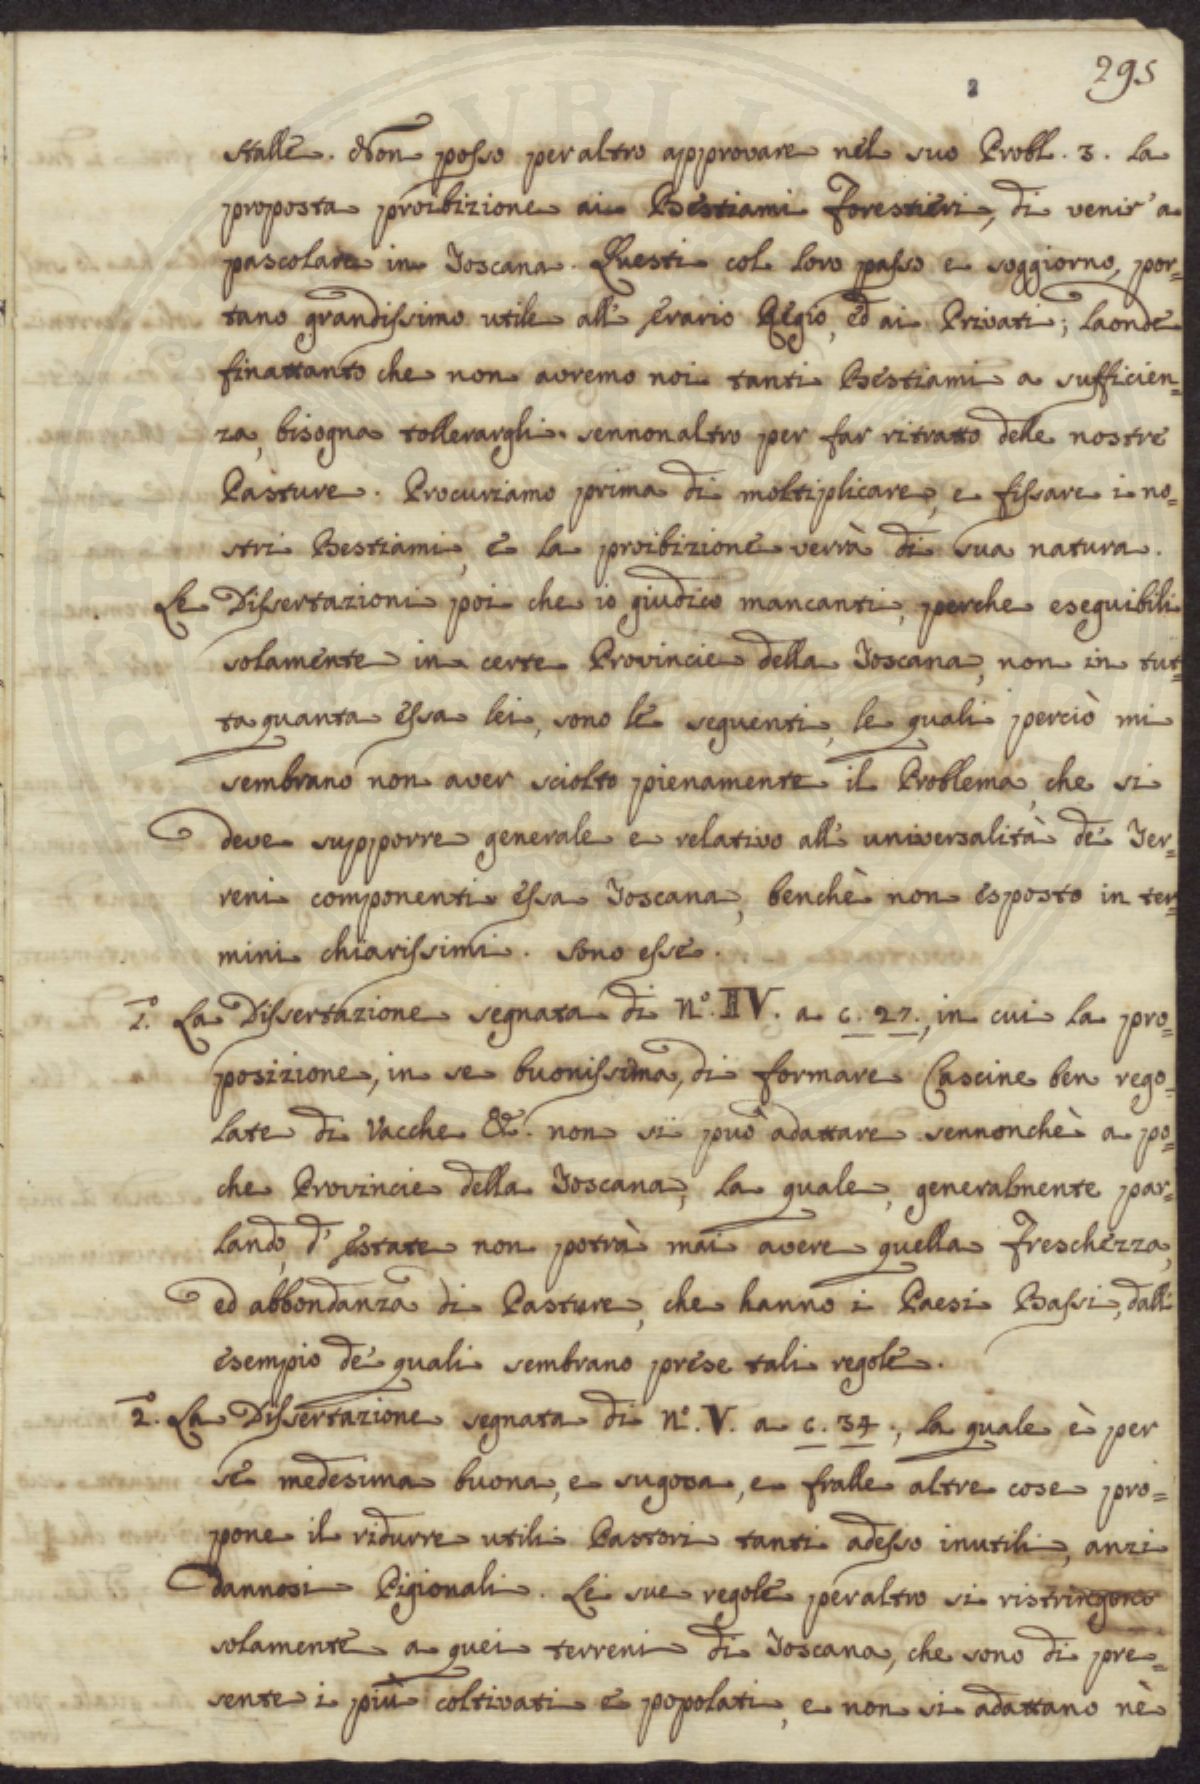 295
2
stalle. Non posso peraltro approvare nel suo Probl. 3. la
proposta proibizione ai Bestiami Forestieri, di venir a
pascolare in Toscana. Questi col loro passo e soggiorno, por=
tano grandissimo utile all' Erario Regio, ed ai Privati; laonde
finattanto che non avremo noi tanti Bestiami a sufficien=
za, bisogna tollerargli. sennonaltro per far ritratto delle nostre
Pasture. Procuriamo prima di moltiplicare, e fissare i no=
stri Bestiami, e la proibizione verrà di sua natura.
Le Dissertazioni poi che io giudico mancanti, perche eseguibili
solamente in certe Provincie della Toscana, non in tut=
ta quanta essa lei, sono le seguenti, le quali perciò mi
sembrano non aver sciolto pienamente il Problema, che si
deve supporre generale e relativo all' universalità de' Ter=
reni componenti essa Toscana, benchè non esposto in ter=
mini chiarissimi. Sono esse.
1.º La Dissertazione segnata di Nº. IV. a c. 27., in cui la pro=
posizione, in se buonissima, di formare Cascine ben rego=
late di Vacche &c. non si può adattare sennonchè a po=
che Provincie della Toscana, la quale, generalmente par=
lando, d' Estate non potrà mai avere quella Freschezza,
ed abbondanza di Pasture, che hanno i Paesi Bassi, dall'
esempio de' quali sembrano prese tali regole.
2.º La Dissertazione segnata di Nº. V. a c. 34., la quale è per
se medesima buona, e sugosa, e fralle altre cose pro=
pone il ridurre utili Pastori tanti adesso inutili, anzi
dannosi Pigionali. Le sue regole peraltro si ristringono
solamente a quei terreni di Toscana, che sono di pre=
sente i più coltivati e popolati, e non si adattano nè